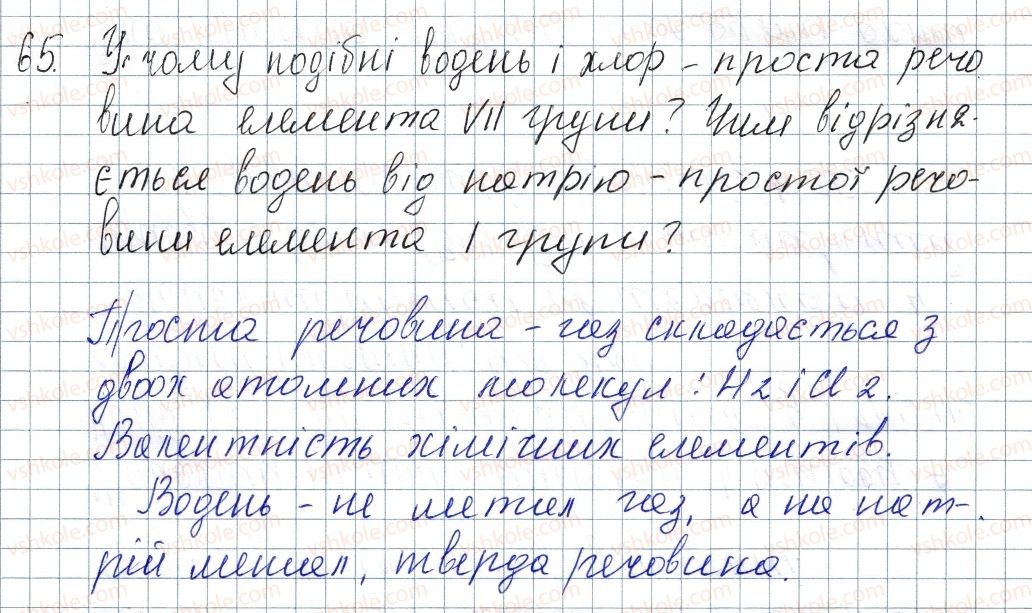 65. У чому подібні водень і хлор - проста речо
вина елемента VII групи? Чим відрізня-
ється водень від натрію - простої речо-
вини елемента I групи?
Проста речовина - газ складається з
двох атомних молекул: H2 і Cl2.
Валентність хімічних елементів.
Водень - не метал газ, а на нат-
рій метал, тверда речовина.